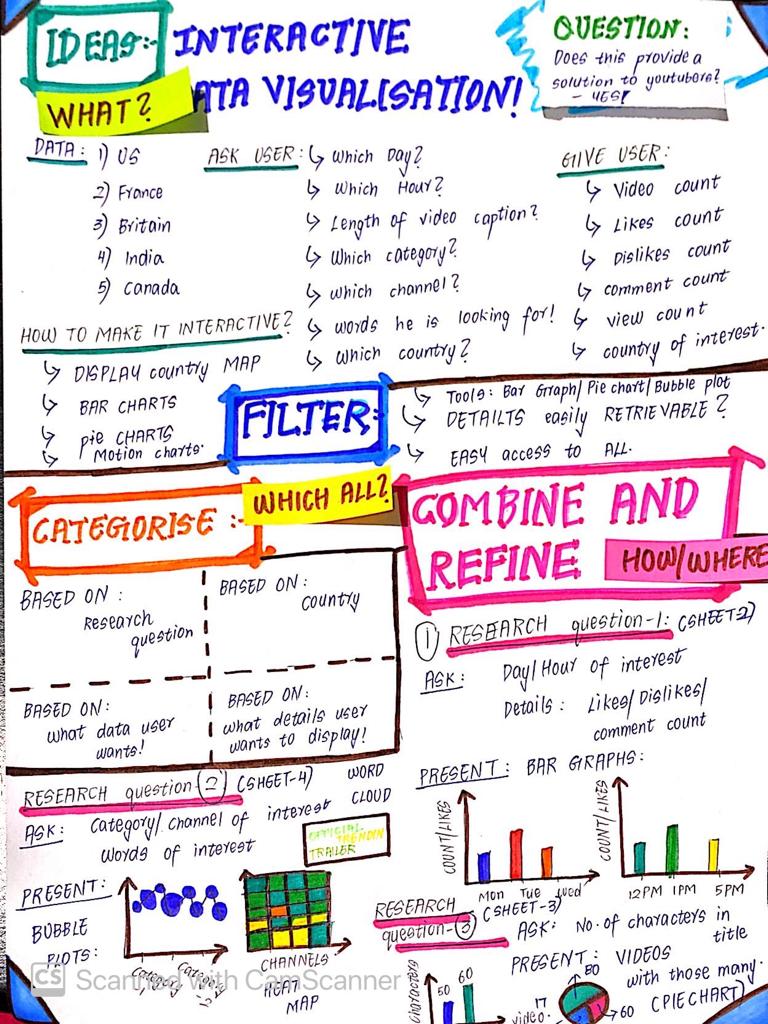 IDEAS:- INTERACTIVE
ATA VISUALISATION!
WHAT?
QUESTION:
Does this provide a
solution to youtubers?
- YES!
DATA: 1) US
2) France
3) Britain
4) India
5) Canada
ASK USER: ↳ Which Day?
↳ Which Hour?
↳ Length of video caption?
↳ Which category?
↳ which channel?
↳ words he is looking for!
↳ Which country?
GIVE USER:
↳ Video count
↳ Likes count
↳ Dislikes count
↳ comment count
↳ view count
↳ country of interest.
HOW TO MAKE IT INTERACTIVE?
↳ DISPLAY country MAP
↳ BAR CHARTS
↳ pie CHARTS
↳ Motion charts.
FILTER:
↳ Tools: Bar Graph/Pie chart/Bubble plot
↳ DETAILTS easily RETRIEVABLE?
↳ EASY access to ALL.
CATEGORISE :-
WHICH ALL?
BASED ON:
Research
question
BASED ON:
country
BASED ON:
what data user
wants!
BASED ON:
what details user
wants to display!
COMBINE AND
REFINE
HOW/WHERE
1 RESEARCH question-1: (SHEET-2)
ASK: Day/Hour of interest
Details: Likes/Dislikes/
comment count
PRESENT: BAR GRAPHS:
COUNT/LIKES
Mon Tue wed
COUNT/LIKES
12PM 1PM 5PM
RESEARCH question-2 (SHEET-4)
WORD
CLOUD
ASK: Category/channel of interest
Words of interest
OFFICIAL TRENDIN
TRAILER
PRESENT:
BUBBLE
PLOTS:
Category
Category
CHANNELS
HEAT
MAP
RESEARCH (SHEET-3)
question-3
ASK: No. of characters in
title
PRESENT: VIDEOS
with those many.
(PIECHART)
characters
50 60
video.
17
80
60
CS Scanned with CamScanner